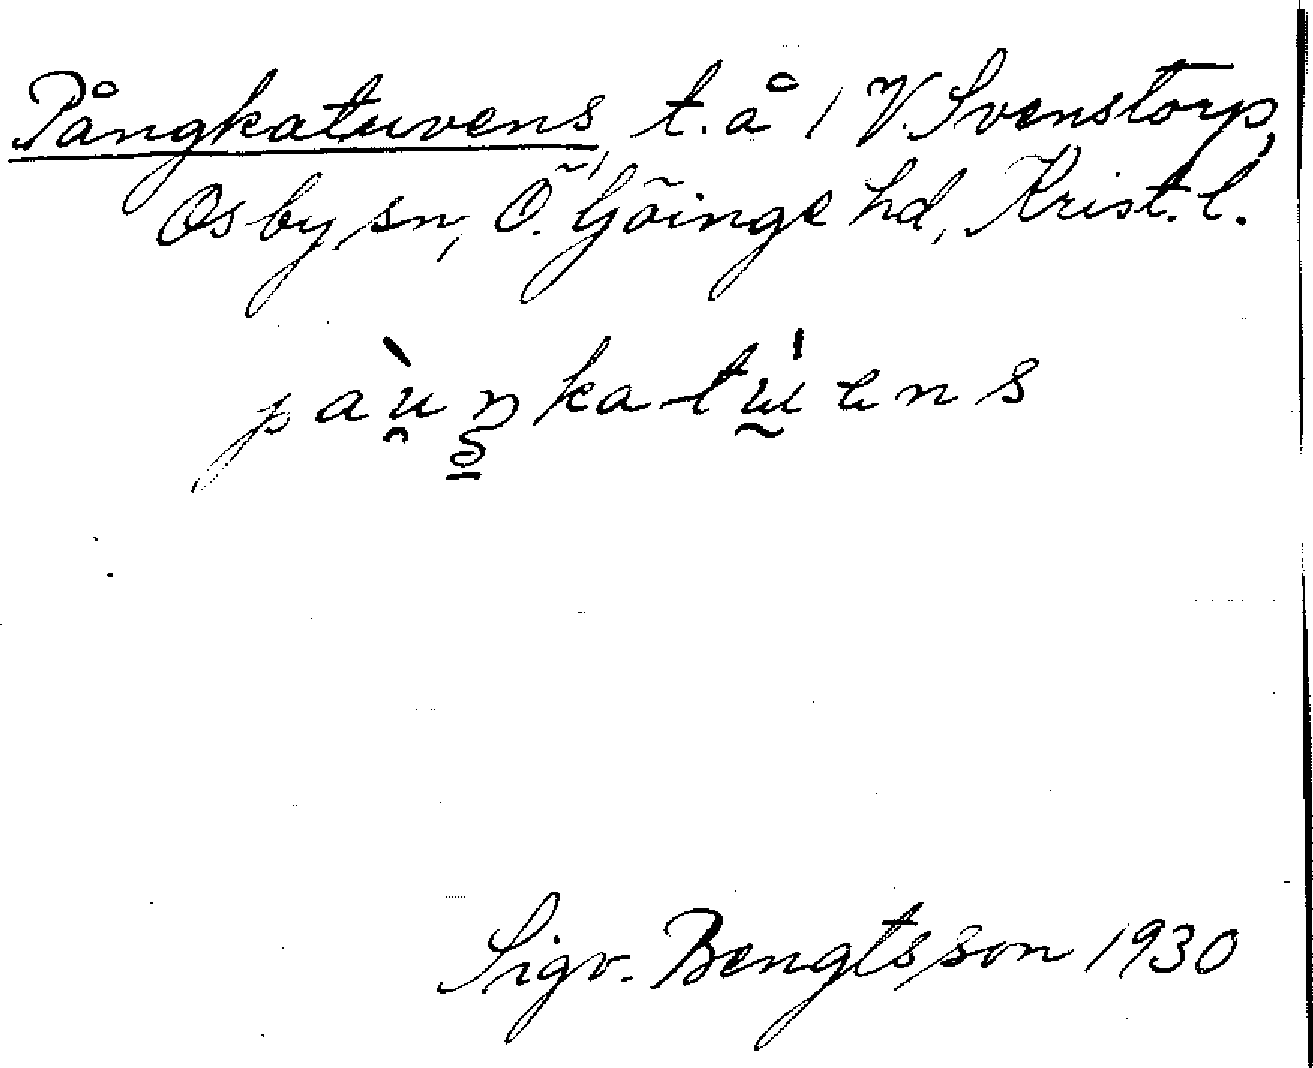 Pångkatuvens, t. å 1 V. Svenstorp,
Osby sn, Ö. Göinge hd, Krist. l.
Sigv. Bengtsson 1930